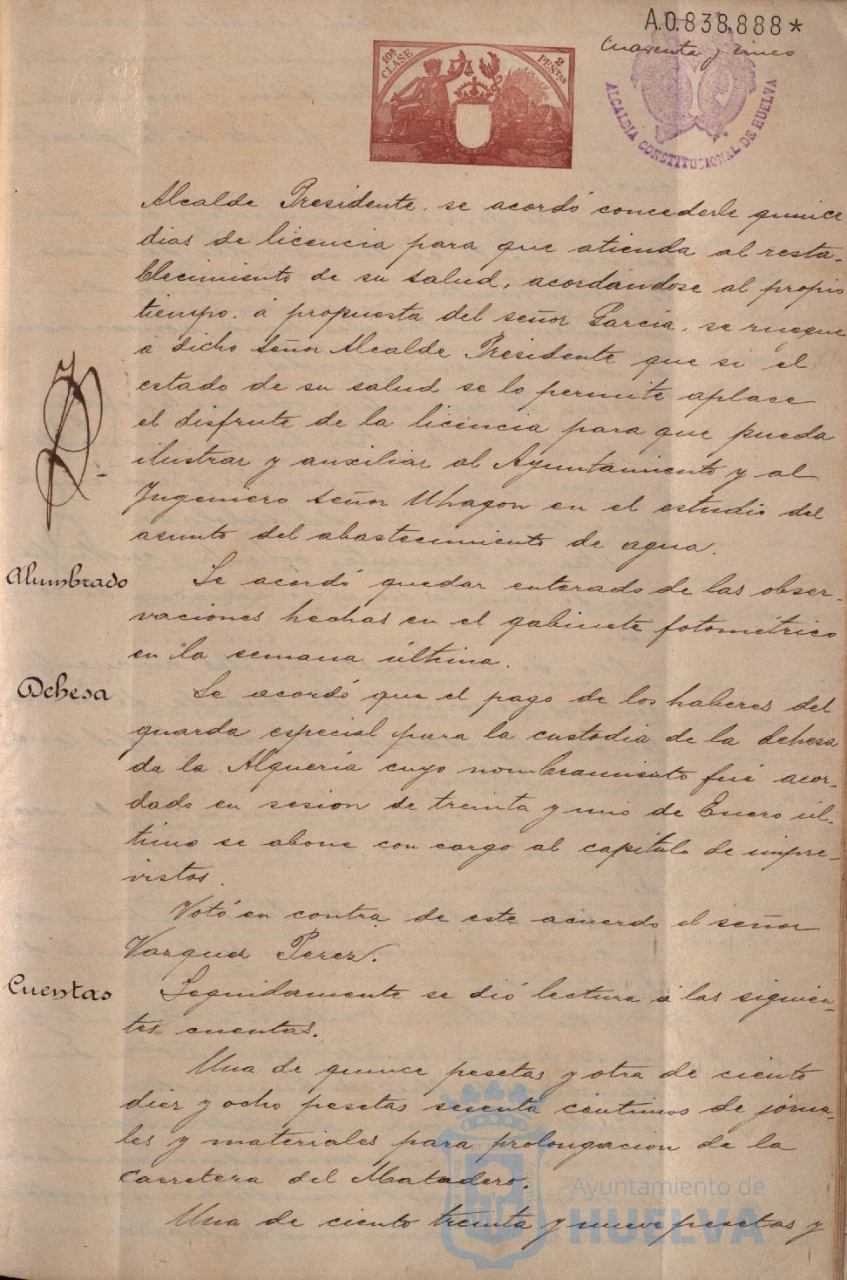 A.0.838.888*
Cuarenta y cinco
10ª CLASE
2 PESETAS
ALCALDIA CONSTITUCIONAL DE HUELVA
Alcalde Presidente, se acordó concederle quince
dias de licencia para que atienda al resta-
blecimiento de su salud, acordándose al propio
tiempo, á propuesta del señor García, se ruegue
á dicho Señor Alcalde Presidente que si el
estado de su salud se lo permite aplace
el disfrute de la licencia para que pueda
ilustrar y auxiliar al Ayuntamiento y al
Ingeniero Señor Uhagon en el estudio del
asunto del abastecimiento de agua.
Alumbrado
Se acordó quedar enterado de las obser-
vaciones hechas en el gabinete fotométrico
en la semana última.
Dehesa
Se acordó que el pago de los haberes del
guarda especial para la custodia de la dehesa
de la Alquería cuyo nombramiento fué acor-
dado en sesion de treinta y uno de Enero úl-
timo se abone con cargo al capítulo de impre-
vistos.
Votó en contra de este acuerdo el señor
Vazquez Perez.
Cuentas
Seguidamente se dió lectura á las siguien-
tes cuentas.
Una de quince pesetas y otra de ciento
diez y ocho pesetas sesenta céntimos de jorna-
les y materiales para prolongacion de la
carretera del Matadero.
Una de ciento treinta y nueve pesetas y
Ayuntamiento de
HUELVA